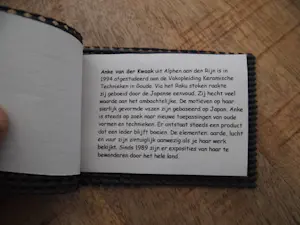 Anke van der Kwaak uit Alphen aan den Rijn is in
1994 afgestudeerd aan de Vakopleiding Keramische
Technieken in Gouda. Via het Raku stoken raakte
zij geboeid door de Japanse eenvoud. Zij hecht veel
waarde aan het ambachtelijke. De motieven op haar
partijtig gevormde vazen zijn gebaseerd op Japan. Anke
is steeds op zoek naar nieuwe toepassingen van oude
vormen en technieken. Er ontstaat steeds een product
dat een ieder blijft boeien. De elementen: aarde, lucht
en vuur zijn onmiskenbaar aanwezig als je haar werk
bekijkt. Sinds 1989 zijn er exposities van haar te
bewonderen door het hele land.